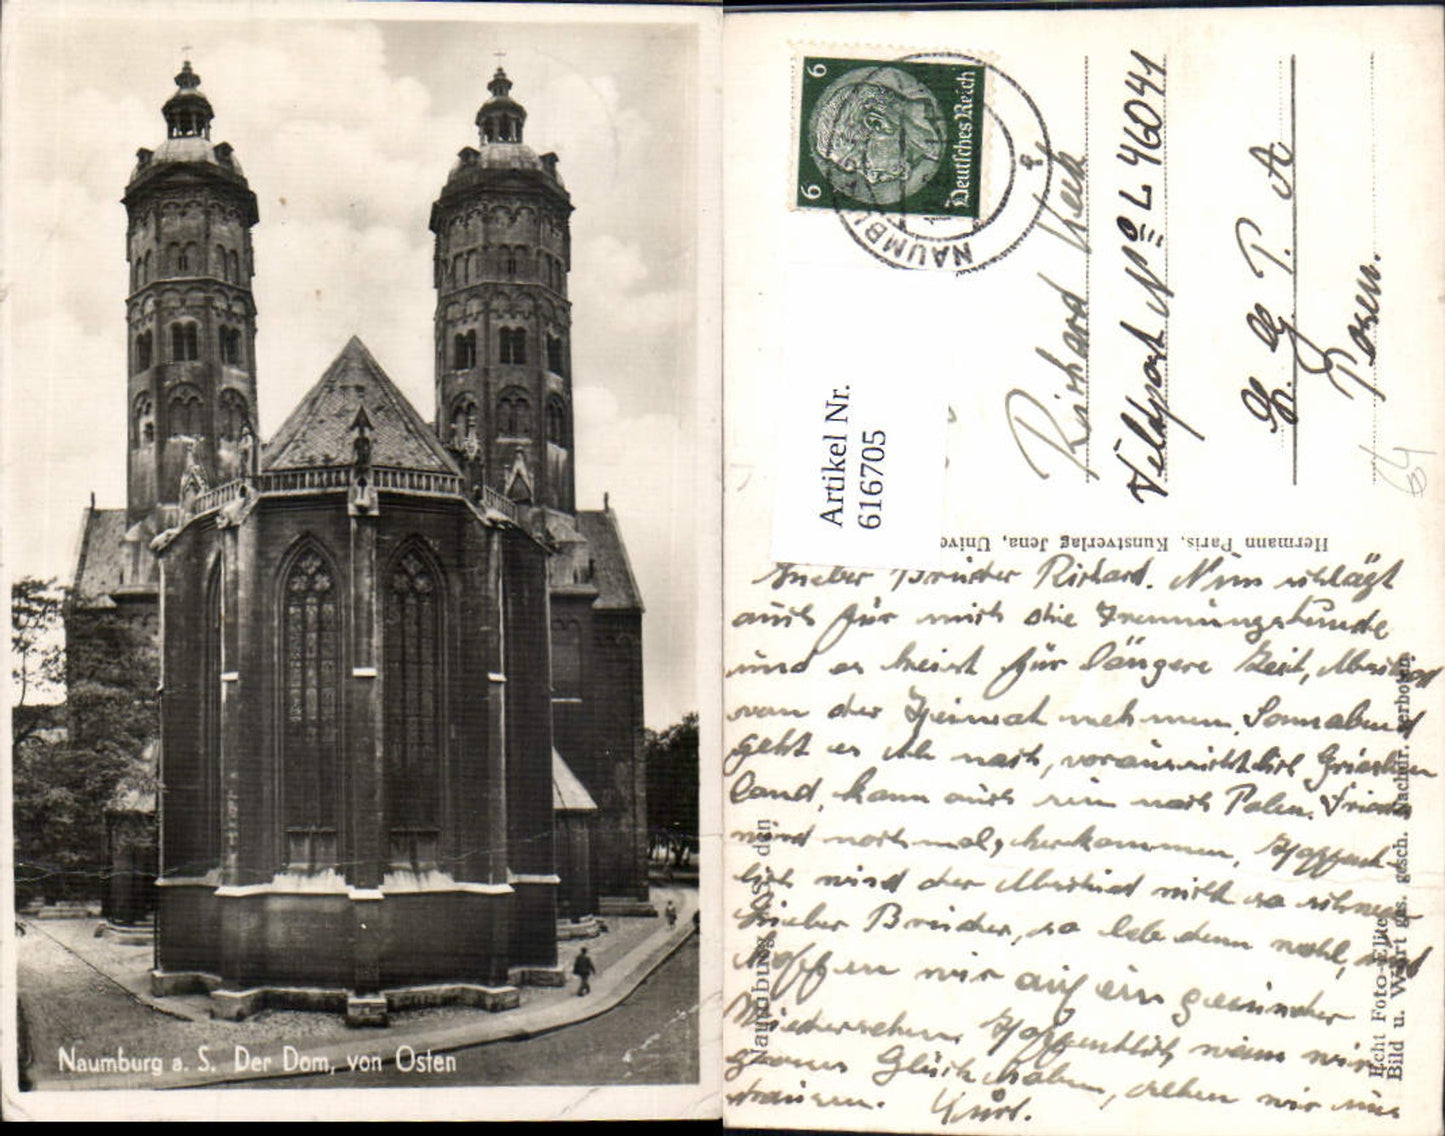 Naumburg a. S. Der Dom, von Osten
Deutsches Reich
6
6
NAUMBU
Artikel Nr.
616705
Richard
Feldpost No L 46041
L. G. P. A
Posen.
64
Hermann Paris, Kunstverlag Jena, Unive
Naumburg
den
Echt Foto-
Bild u. Wort ges. gesch. Nachdr. verboten
Lieber Bruder Richard. Nun schlägt
auch für mich die Trennungsstunde
und es heist für längere Zeit, Abschied
von der Heimat nehmen. Sonnabend
geht es ich nach, voraussichtlich Griechen
land, kann auch sein nach Polen.
wird noch mal herkommen, Hoffent
lich wird der Abschied nicht so schwer
Lieber Bruder, so lebe denn wohl, und
hoffen wir auf ein gesundes
Wiedersehen. Hoffentlich wenn wir
Glück haben, sehen wir uns
draussen. Kurt.